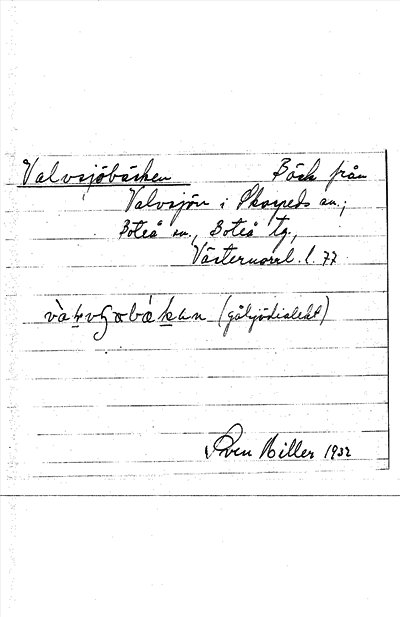 Valvsjöbäcken Bäck från
Valvsjön i Skorpeds sn.;
Boteå sn., Boteå tg.,
Västernorrl. l. 77.
(gålsjödialekt)
Sven Hiller 1932